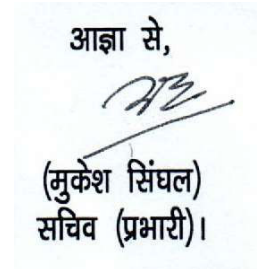 आज्ञा से,
(मुकेश सिंघल)
सचिव (प्रभारी)।